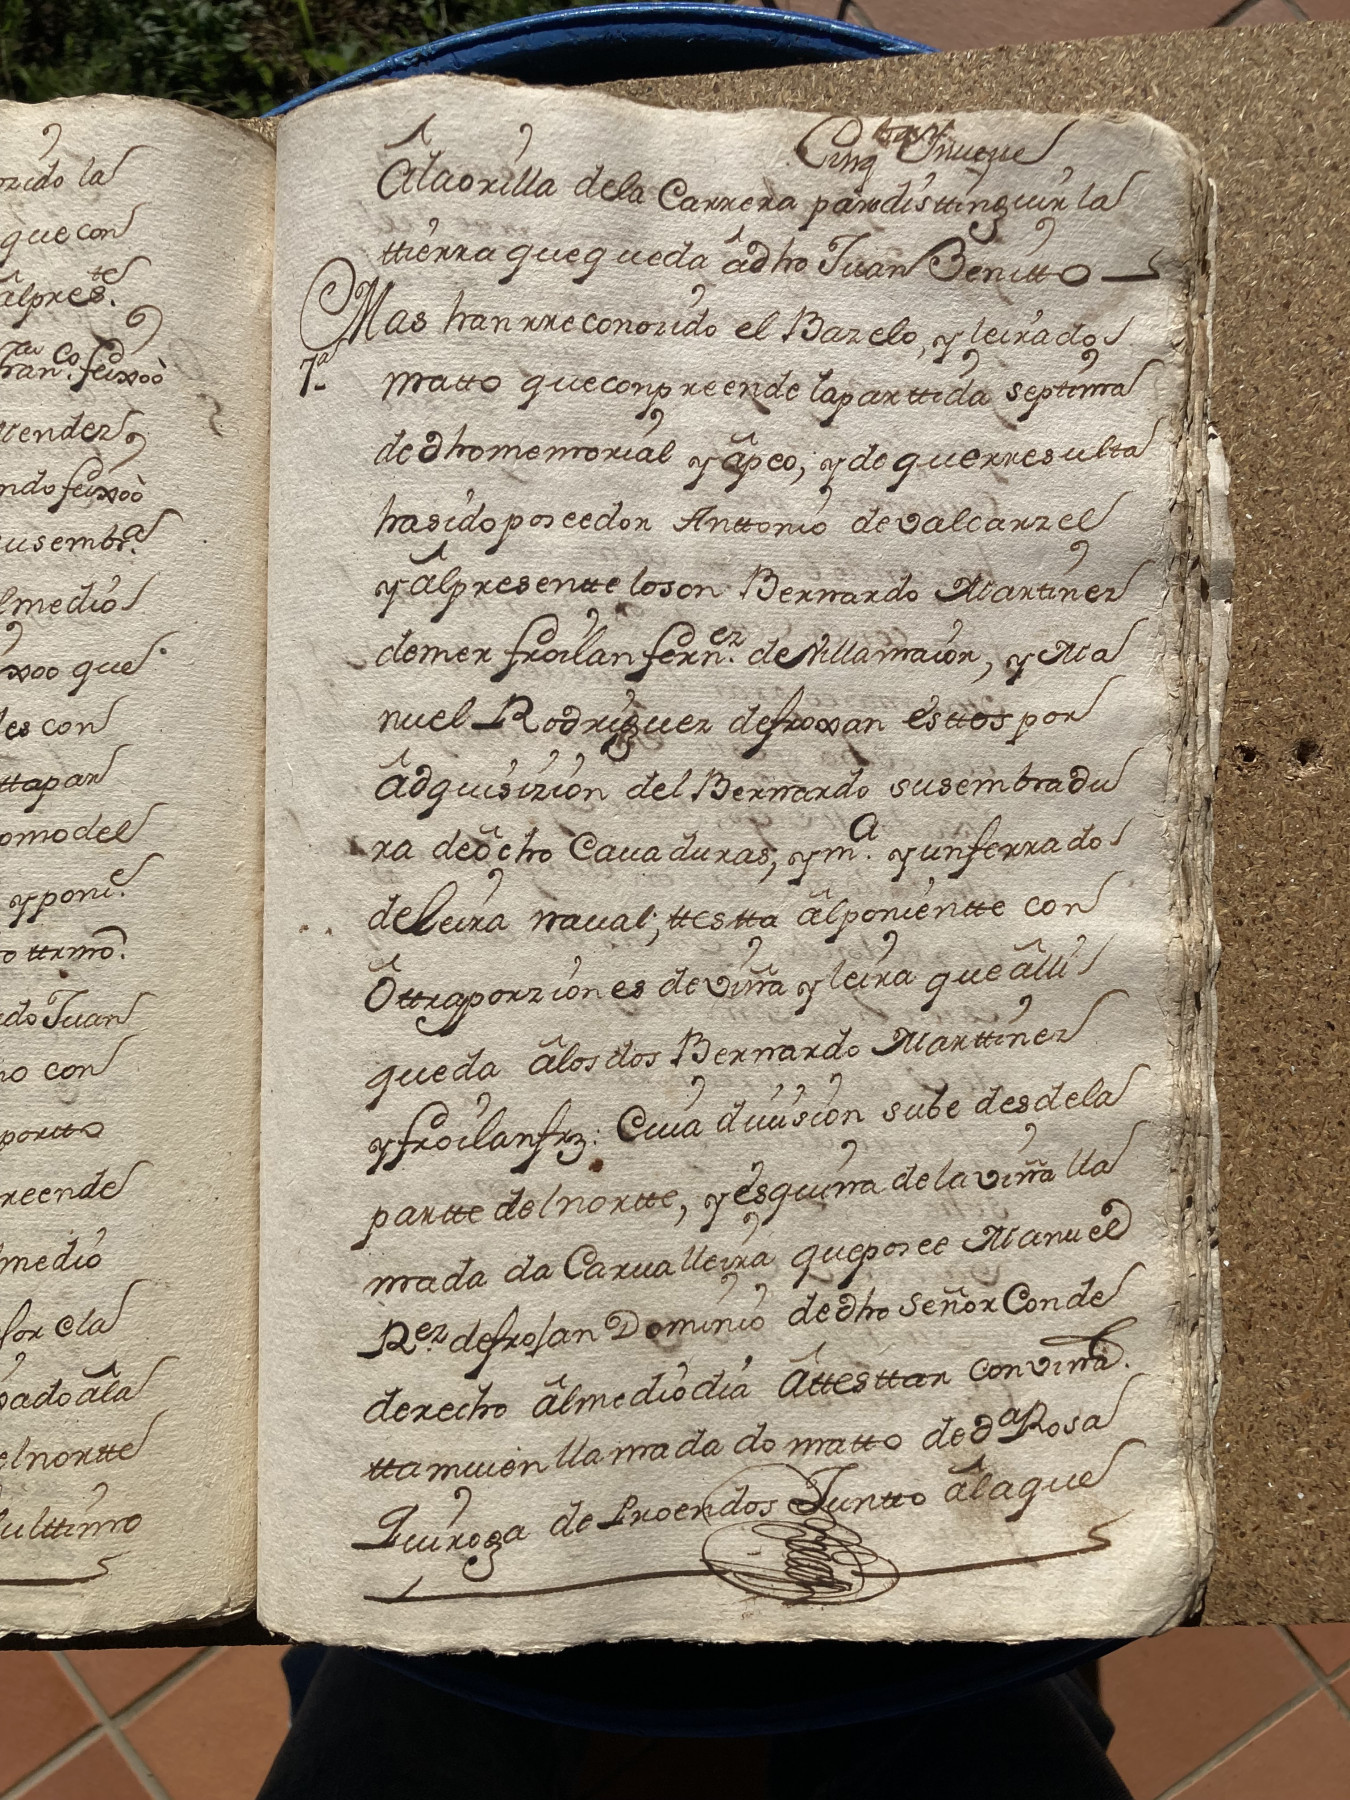 ozido la
que con
âlpres.te
fran.co feixoò
Mendez
ndo feixoò
susembr.a
lmedio
ixoo que
les con
ttapar
omodel
y poni.e
o ttrmo.
do Juan
no con
poritto
reende
medio
for ela
ado âla
el nortte
ulttimo
Cinq.ta y nueue
Âla orilla dela Carrera para disttinguir la
ttierra que queda âdho Juan Benitto
Mas han rreconozido el Bazelo, y leira do
7.a matto que conpreende la parttida septima
de dho memorial y âpeo; y de que rresulta
ha sido poseedor Anttonio de valcarzel
y âl presentte lo son Bernardo Martinez
demer froilan fern.ez de Villamaior, y Ma
nuel Rodriguez de froxan êsttos por
âdquisizion del Bernardo su sembradu
ra de ôcho Cauaduras, y m.a y un ferrado
de leira naual; ttestta âl ponientte con
Ôttra porziones de viña y leira que âlli
queda âlos dos Bernardo Marttinez
y froilan frz: Cuia diuision sube desde la
partte del nortte, y êsquina de la viña lla
mada da Carualleira que posee Manuel
R.ez de frojan Dominio de dho señor Conde
derecho âl mediodia Âttesttar con viña
ttamuien llamada do matto de d.a Rosa
Quiroga de Proendos Juntto âla que